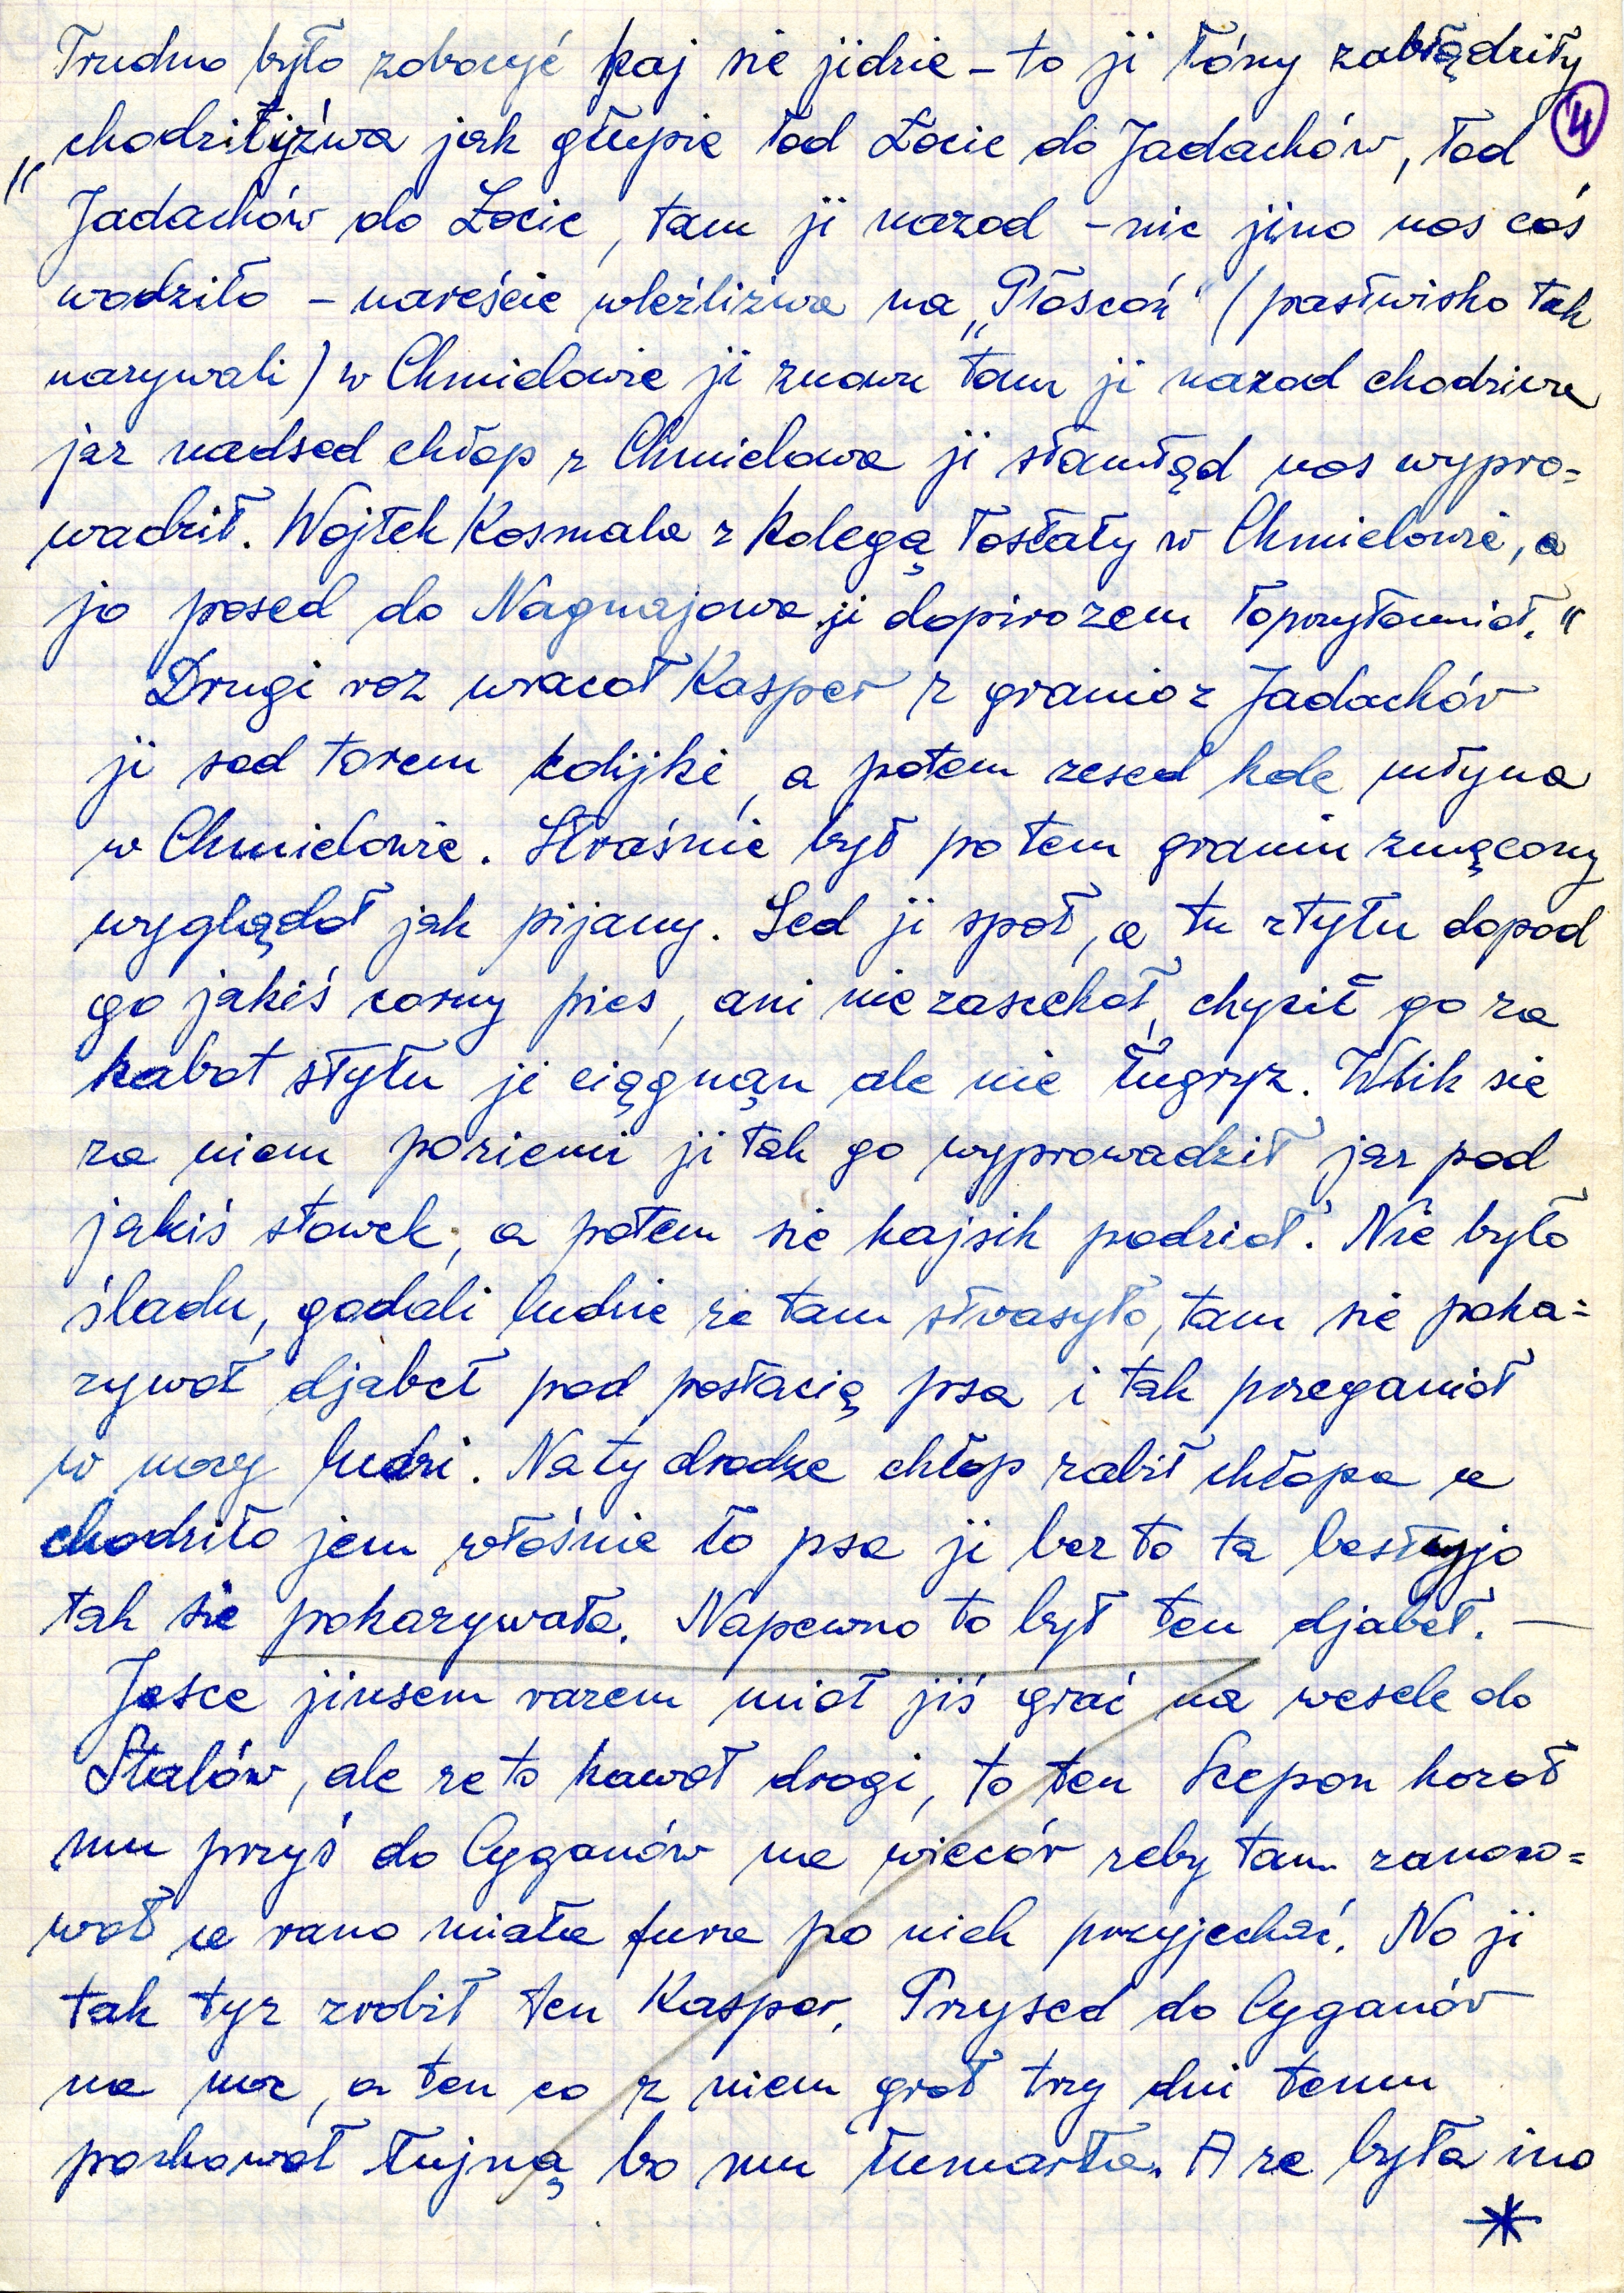 Trudno było zobocyć kaj sie jidzie – to ji łóny zabłądziły
④
„chodziłiźwa jak głupie łod Łocic do Jadachów, łod
Jadachów do Łocic, tam ji nazod – nic jino nos coś
wodziło – nareście wleźliźwa na „Płoscoń" (pastwisko tak
nazywali) w Chmielowie ji znowu tam ji nazod chodziwa
jaz nadsed chłop z Chmielowa ji stamtąd nos wypro=
wadził. Wojtek Kosmala z kolegą łostały w Chmielowie, a
jo posed do Nagnajowa ji dopirozem łoprzytomniał."
Drugi roz wracoł Kasper z granio z Jadachów
ji sed torem kolijki, a potem zesed kole młyna
w Chmielowie. Straśnie był po tem graniu zmęcony
wyglądoł jak pijany. Sed ji społ, a tu ztyłu dopod
go jakiś corny pies, ani nie zascekoł, chycił go za
kabot styłu ji ciągnąn ale nie ługryz. Wlik sie
za niem poziemi ji tak go wyprowadził jaz pod
jakiś stawek, a potem sie kajsik podzioł. Nie było
śladu, godali ludzie ze tam strasyło, tam sie poka=
zywoł djabeł pod postacią psa i tak przeganioł
w nocy ludzi. Na ty drodze chłop zabił chłopa a
chodziło jem włośnie ło psa ji bez to ta bestyjo
tak sie pokazywała. Napewno to był ten djabeł. —
Jesce jinsem razem mioł jiś grać na wesele do
Stalów, ale ze to kawoł drogi, to ten Scepon kozoł
mu przyś do Cyganów na wiecór zeby tam zanoco=
woł a rano miała fura po nich przyjechać. No ji
tak tyz zrobił ten Kasper. Przysed do Cyganów
na noc, a ten co z niem groł trzy dni temu
pochowoł łujną bo mu łumarła. A ze była ino
*